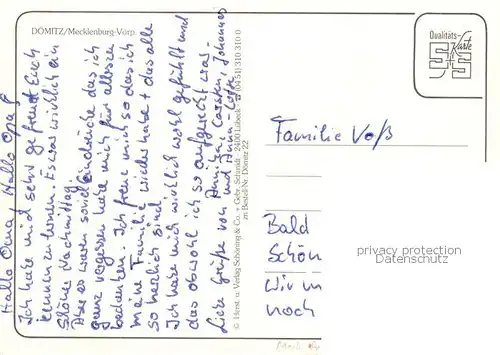 DÖMITZ/Mecklenburg-Vorp.
Hallo Oma, Hallo Opa!
Ich habe mich sehr gefreut Euch
kennen zu lernen. Es war wirklich ein
schöner Nachmittag.
Aber es waren soviel Eindrücke das ich
ganz vergessen habe mich für alles zu
bedanken. Ich freue mich so das ich
meine Familie wieder habe + das alle
so herzlich sind.
Ich habe mich wirklich wohl gefühlt und
das obwohl ich so aufgeregt war.
Liebe Grüße von Annika, Carsten, Johannes
und
© Herst. u. Verlag Schöning & Co. + Gebr. Schmidt · 2400 Lübeck · ☎ (0451) 310 310 0
zu Bestell-Nr. Dömitz 22
Qualitäts-
Karte
Familie Voß
Bald
Schön
Wir
noch
privacy protection
Datenschutz